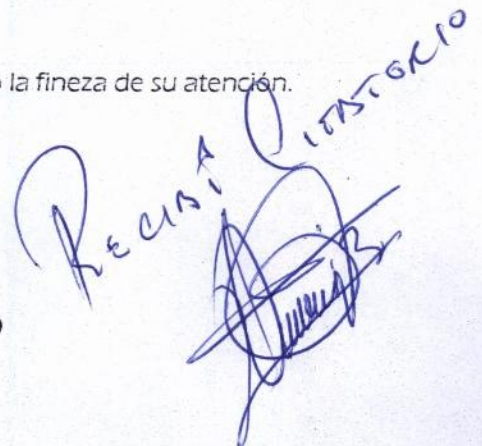 la fineza de su atención.
RECIBÍ CITATORIO